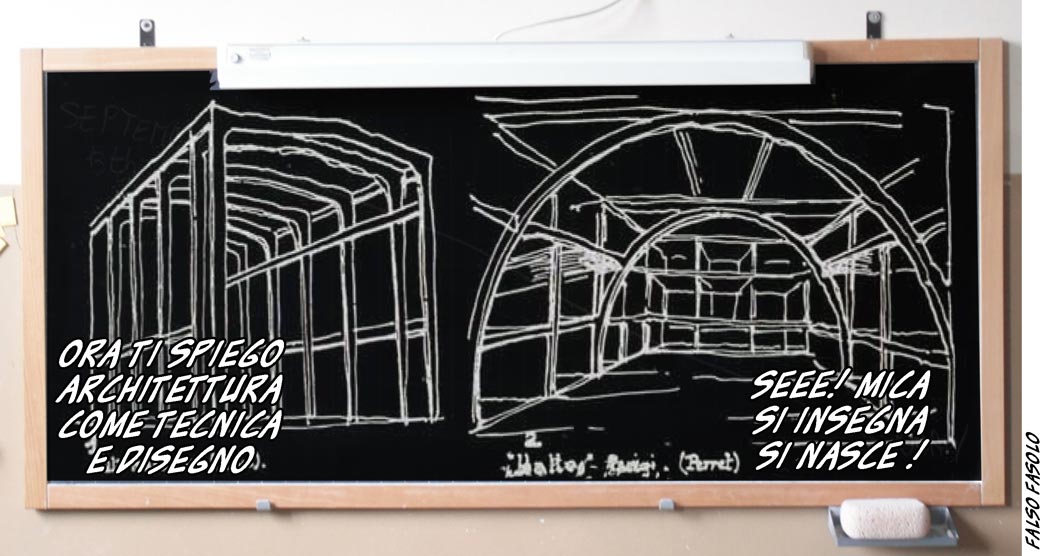 ORA TI SPIEGO
ARCHITETTURA
COME TECNICA
E DISEGNO
SEEE! MICA
SI INSEGNA
SI NASCE!
2
Parigi. (Perret)
FALSO FASOLO